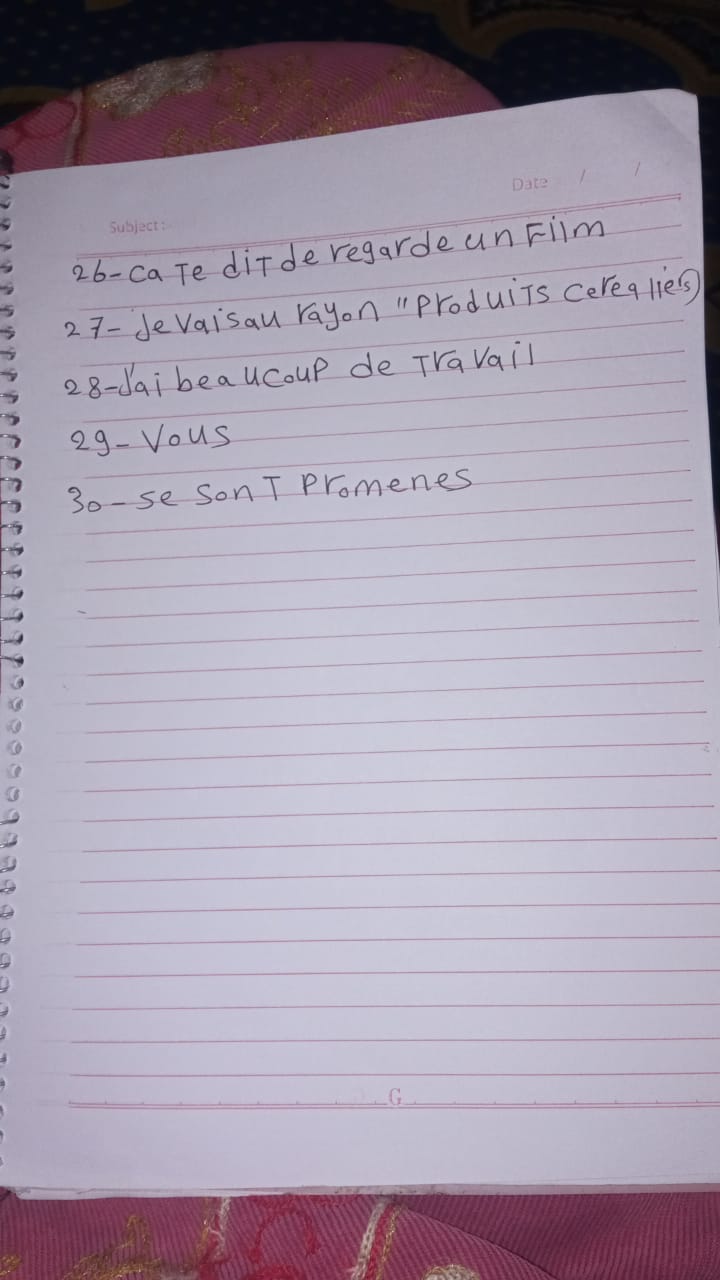 Date / /
Subject:
26- Ca Te dit de regarde un Film
27- Je vais au rayon "Produits cerealiers)
28- J'ai beaucoup de Travail
29- Vous
30- se sont Promenes
G